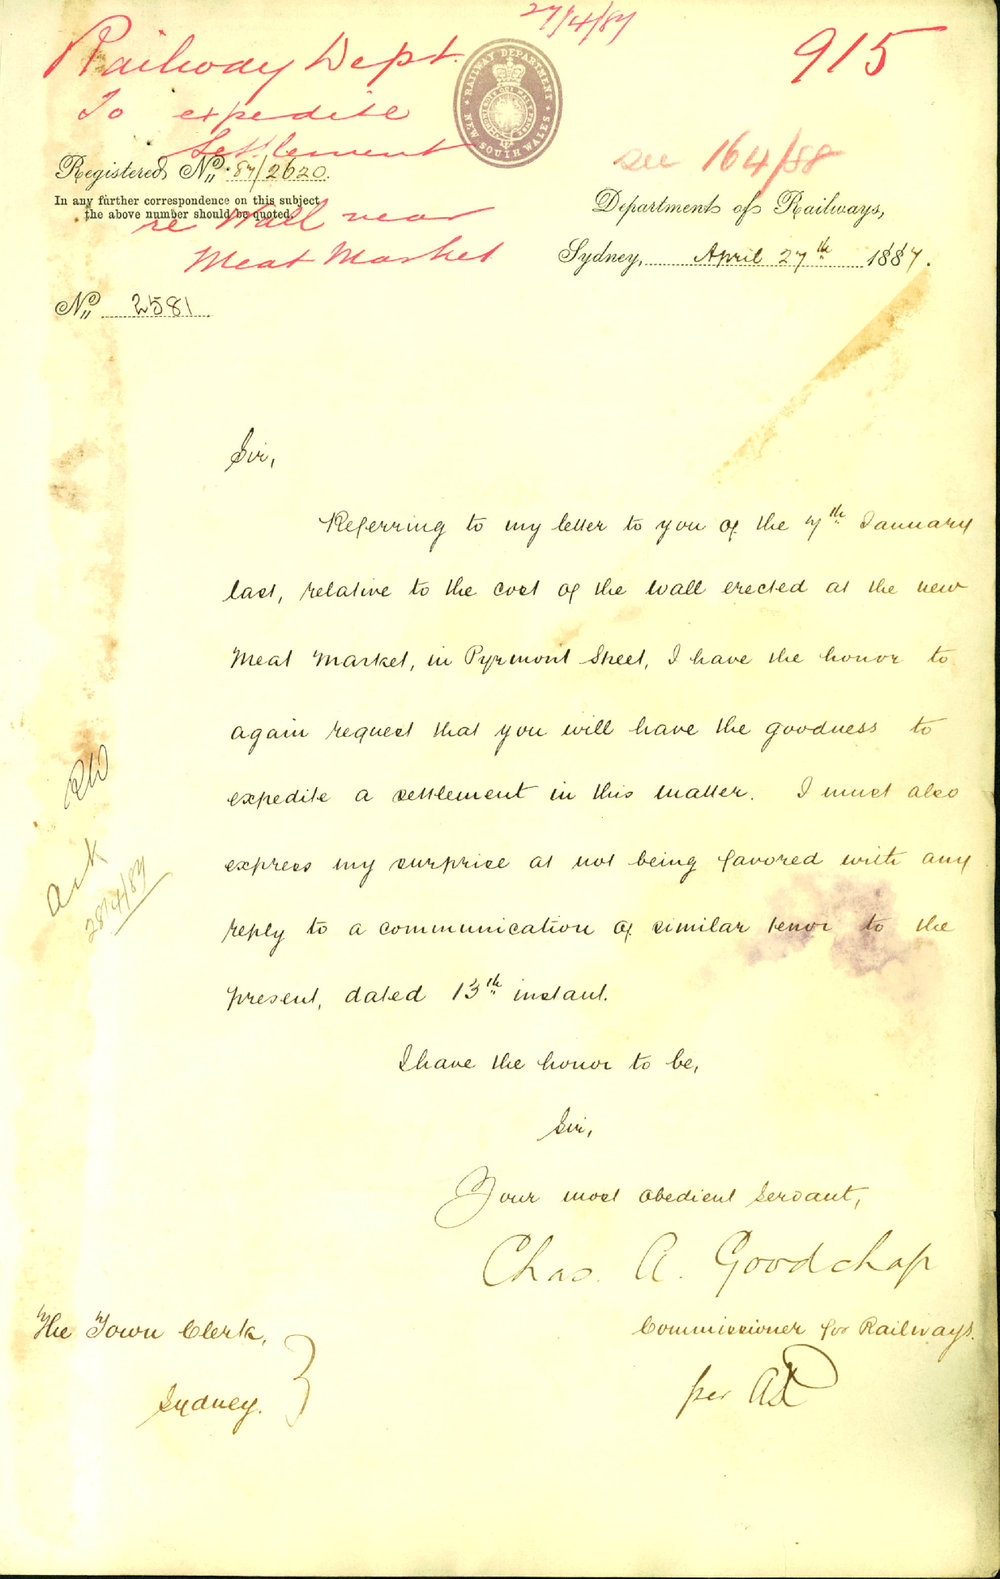 27/4/87
Railway Dept.
915
To expedite
Settlement
re Wall near
Meat Market
RAILWAY DEPARTMENT
NEW SOUTH WALES
see 164/88
Registered No. 87/2620.
In any further correspondence on this subject
the above number should be quoted.
Department of Railways,
Sydney, April 27th 1887.
No. 2581
Sir,
Referring to my letter to you of the 7th January
last, relative to the cost of the wall erected at the new
Meat Market, in Pyrmont Street, I have the honor to
again request that you will have the goodness to
expedite a settlement in this matter. I must also
express my surprise at not being favored with any
reply to a communication of similar tenor to the
present, dated 13th instant.
I have the honor to be,
Sir,
Your most obedient Servant,
Chas. A. Goodchap
Commissioner for Railways.
per
The Town Clerk,
Sydney.
Ack
28/4/87